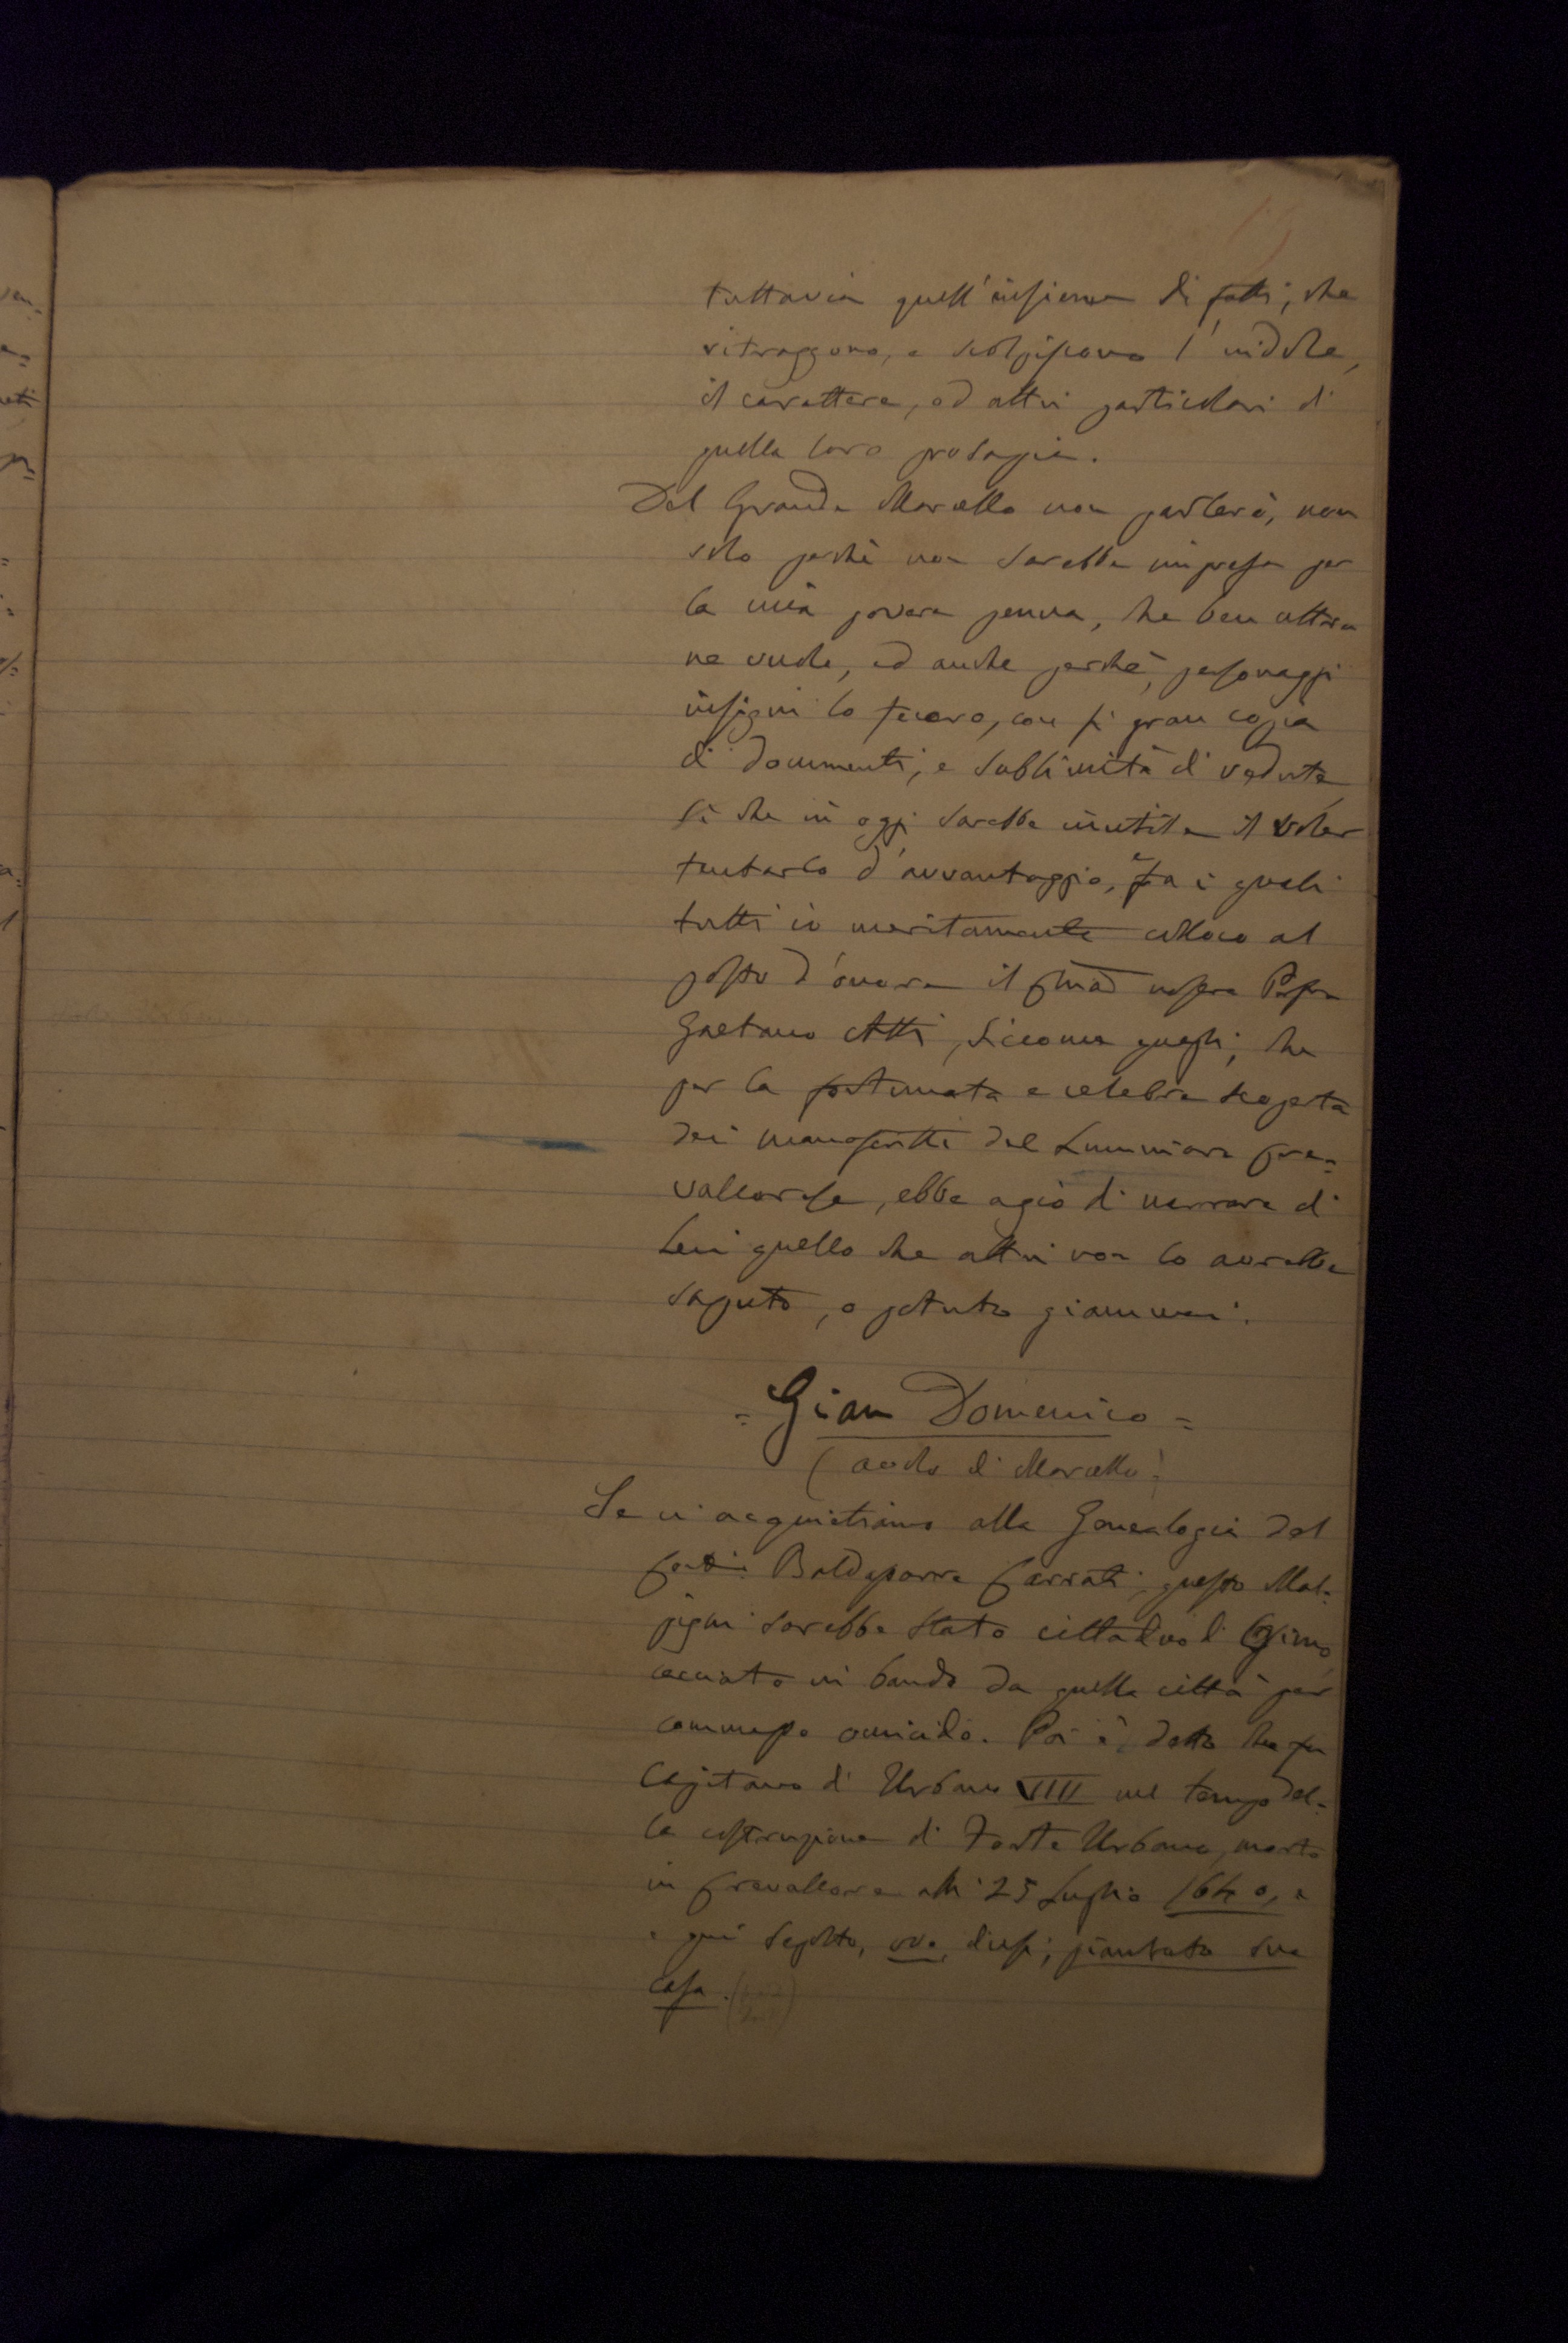 tuttavia quell'insieme di fatti, che
ritraggono, e scolpiscono l'indole,
il carattere, ed altri particolari di
quella loro prosapia.
Del Grande Marcello non parlerò, non
solo perchè non sarebbe impresa per
la mia povera penna, che ben altra
ne vuole, ed anche perchè, personaggi
insigni lo fecero, con sì gran copia
di documenti, e sublimità di vedute,
sì che in oggi sarebbe inutile il voler
tentarlo d'avvantaggio, fra i quali
tutti io meritamente colloco al
posto d'onore il nostro Profre
Gaetano Atti, siccome quegli, che
per la fortunata e celebre scoperta
dei manoscritti del Luminare Cre=
valcorese, ebbe agio di narrare di
Lui quello che altri non lo avrebbe
saputo, o potuto giammai.
= Gian Domenico =
(avolo di Marcello)
Se ci acquietiamo alla Genealogia del
Baldassarre Carrati, questo Mal=
pighi sarebbe stato cittadino di Osimo,
cacciato in bando da quella città per
commesso omicidio. Poi è detto che fu
Capitano di Urbano VIII nel tempo del=
la costruzione di Forte Urbano, morto
in Crevalcore alli 25 Luglio 1640, e
e qui sepolto, ove, dicesi, piantata sua
casa.